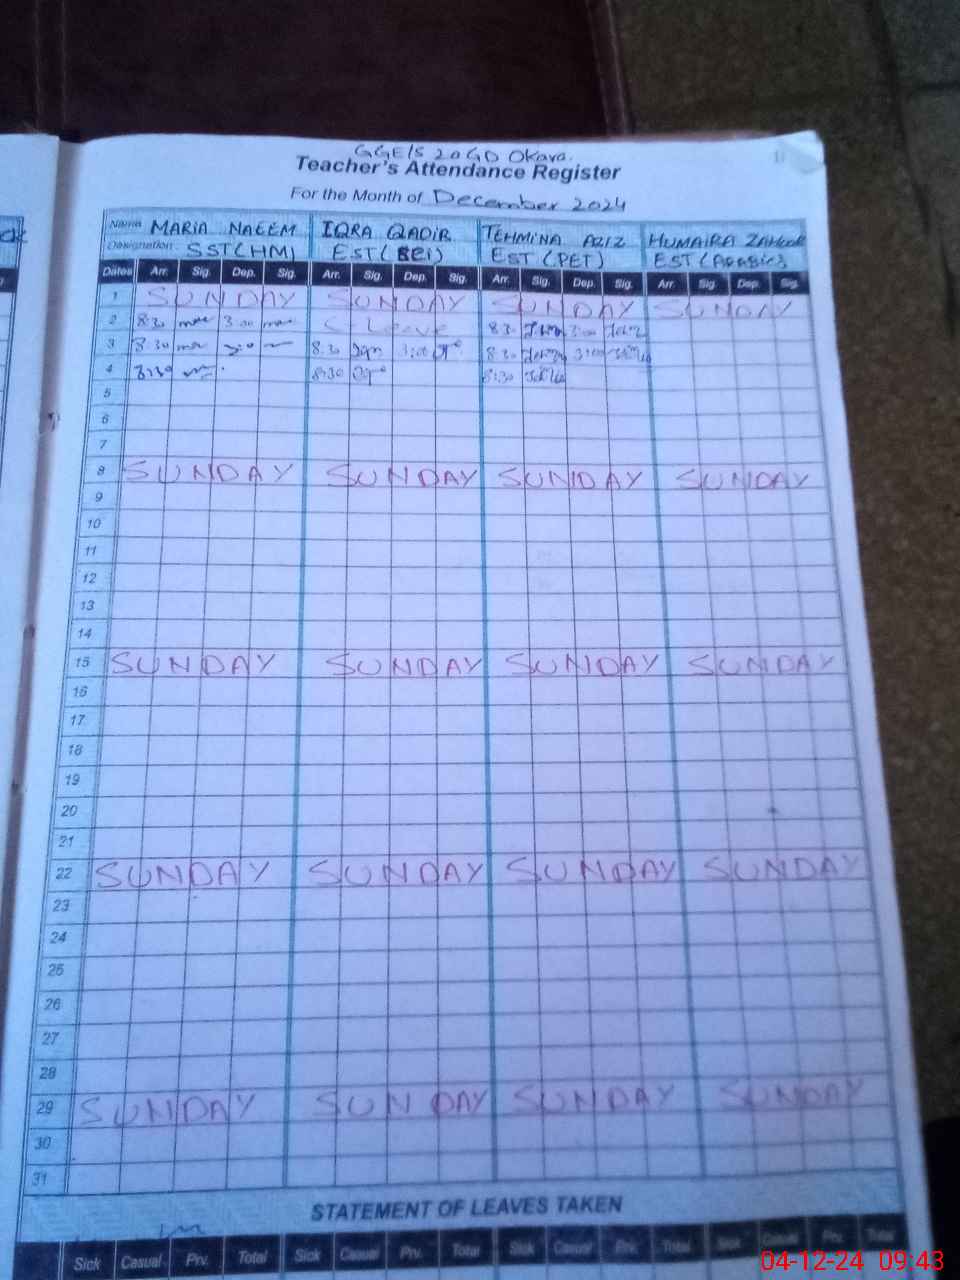 GGE/S 20GD Okara.
Teacher's Attendance Register
For the Month of December 2024
Name MARIA NAEEM IQRA QADIR TEHMINA AZIZ HUMAIRA
Designation: SST(HM) EST(SCI) EST(PET) EST(Arabic)
Dates Arr. Sig. Dep. Sig. Arr. Sig. Dep. Sig. Arr. Sig. Dep. Sig. Arr. Sig. Dep. Sig.
1 SUNDAY SUNDAY SUNDAY SUNDAY
2 8:30 3:00 Leave 8:30 3:00
3 8:30 3:0 8:30 3:00 8:30 3:00
4 8:30 8:30 8:30
5
6
7
8 SUNDAY SUNDAY SUNDAY SUNDAY
9
10
11
12
13
14
15 SUNDAY SUNDAY SUNDAY SUNDAY
16
17
18
19
20
21
22 SUNDAY SUNDAY SUNDAY SUNDAY
23
24
25
26
27
28
29 SUNDAY SUNDAY SUNDAY SUNDAY
30
31
STATEMENT OF LEAVES TAKEN
Sick Casual Prv. Total Sick Casual Prv. Total Sick Casual Prv. Total Sick Casual Prv. Total
04-12-24 09:43